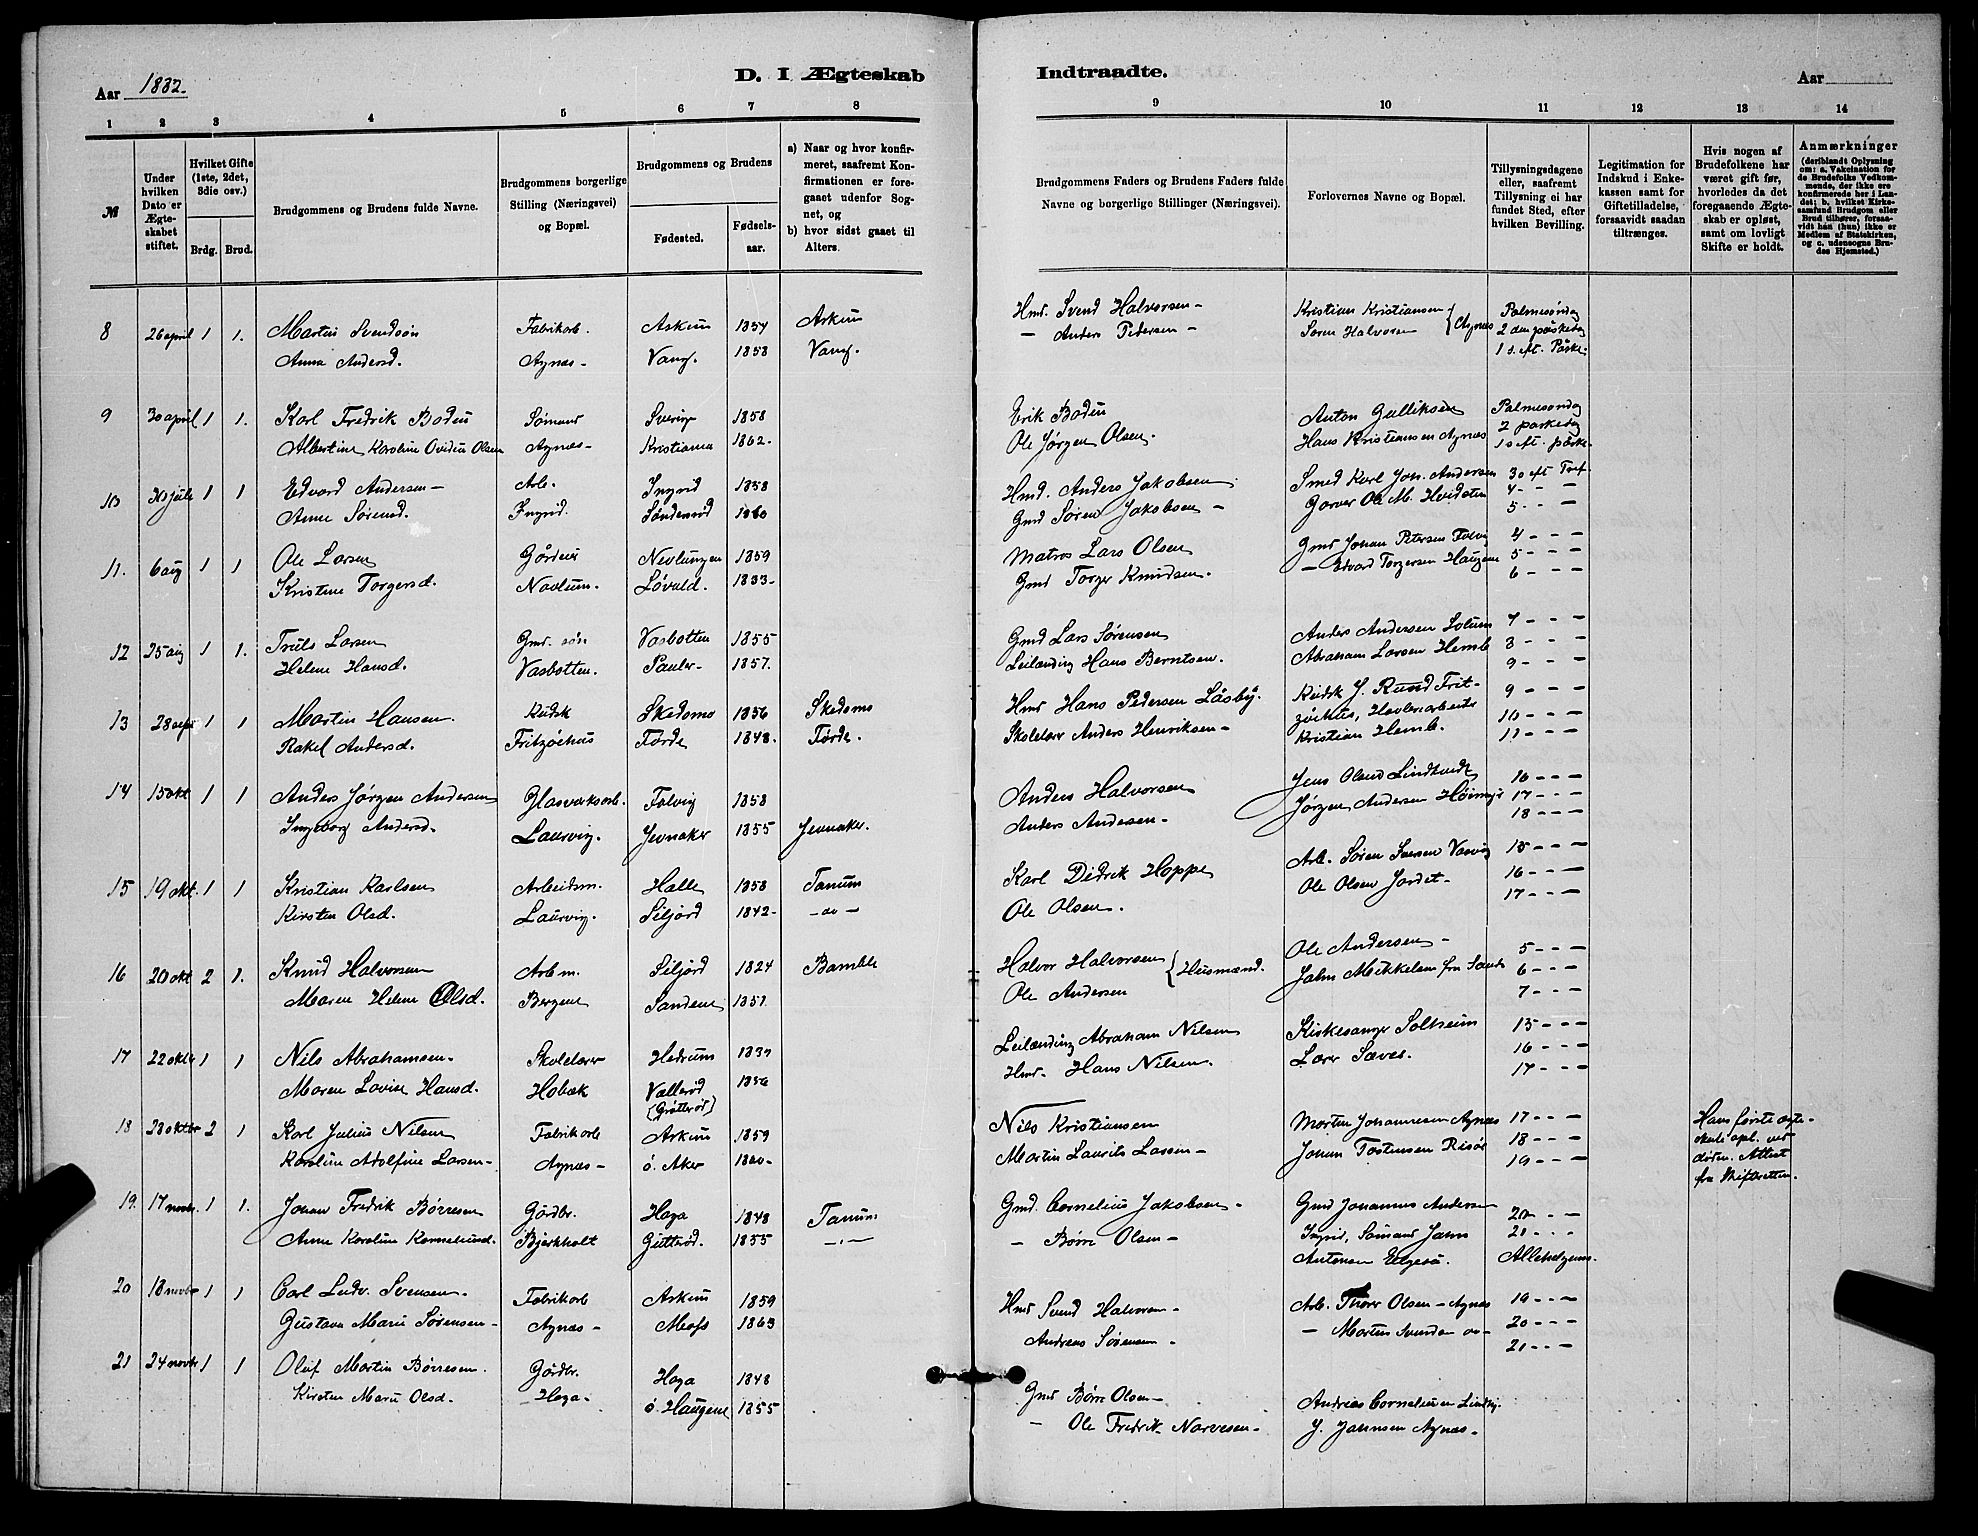 Aar 1882.
D. I Ægteskab
1 2 3 4 5 6 7 8
№
Under hvilken Dato er Ægteskabet stiftet.
Hvilket Gifte (1ste, 2det, 3die osv.)
Brdg. Brud.
Brudgommens og Brudens fulde Navne.
Brudgommens borgerlige Stilling (Næringsvei) og Bopæl.
Brudgommens og Brudens
Fødested.
Fødselsaar.
a) Naar og hvor konfirmeret, saafremt Konfirmationen er foregaaet udenfor Sognet, og
b) hvor sidst gaaet til Alters.
8 26 april 1 1. Martin Svendsøn Fabrikarb. Askim 1854 Askim
Anna Andersd. Agnæs - Vang. 1858 Vang.
9 30 april 1 1. Karl Fredrik Bodin Sømand Sverig 1858
Albertine Karoline Ovidia Olsen Agnæs - Kristiania 1862.
10 30 juli 1 1 Edvard Andersen - Arb. Ingrid 1858
Anne Sørensd. Ingrid. Søndersrød 1860
11. 6 aug 1 1 Ole Larsen Gårdeier Nevlungen 1859
Kristine Torgersd. Navlum. Løvald. 1833-
12 25 aug 1 1. Truls Larsen Gmd. søn Vasbotten 1855
Helene Hansd. Vasbotten. Pauler - 1857.
13 28 1 1 Martin Hansen. Kudsk Skedsmo 1856 Skedsmo
Rakel Andersd. Fritzøehus Førde 1848. Førde.
14 15 okt 1 1 Anders Jørgen Andersen Glasverksarb. Falvig 1858
Ingeborg Andersd. Laurvig. Jevnaker 1855 Jevnaker.
15 19 okt. 1 1 Kristian Karlsen Arbeidsm. Halle 1858 Tanum
Kirsten Olsd. Laurvig. Siljord 1842- - do -
16 20 okt 2 1. Knud Halvorsen Arb m. Siljord 1824 Bamble
Maren Helene Olsd. Bergene Sandene 1857
17 22 oktbr 1 1 Nils Abrahamsen - Skolelærer Hedrum 1837
Maren Lovise Hansd. Hobæk Vallerød 1856
(Grøtterød)
18 28 oktbr 2 1 Karl Julius Nilsen Fabrikarb Askim 1859
Karoline Adolfine Larsen - Agnæs - ø. Aker 1860-
19. 17 novbr. 1 1. Johan Fredrik Børresen Gårdbr. Haga 1848 Tanum
Anne Karoline Korneliusd. Bjerkholt Gutterød. 1855 - " -
20 18 novbr 1 1 Carl Ludv. Svensen. Fabrikarb Askim 1859
Gustava Marie Sørensen - Agnæs - Moss 1863
21 24 novbr 1 1 Oluf Martin Børresen. Gårdbr. Haga 1848
Kirsten Marie Olsd. Haga - ø. Haugene 1855
Indtraadte.
Aar
9 10 11 12 13 14
Brudgommens Faders og Brudens Faders fulde Navne og borgerlige Stillinger (Næringsvei).
Forlovernes Navne og Bopæl.
Tillysningsdagene eller, saafremt Tillysning ei har fundet Sted, efter hvilken Bevilling.
Legitimation for Indskud i Enkekassen samt for Giftetilladelse, forsaavidt saadan tiltrænges.
Hvis nogen af Brudefolkene har været gift før, hvorledes da det foregaaende Ægteskab er opløst, samt om lovligt Skifte er holdt.
Anmærkninger
(deriblandt Oplysning om: a. Vakcination for de Brudefolks Vedkommende, der ikke ere konfirmerede her i Landet; b. hvilket Kirkesamfund Brudgom eller Brud tilhører, forsaavidt han (hun) ikke er Medlem af Statskirken, og c. udensogns Brudes Hjemsted.)
Hmd. Svend Halvorsen - Kristian Kristiansen Palmesøndag
- Anders Pedersen - Søren Halvorsen } Agnæs 2den påskedag
1 s. eft. Påske.
Erik Bodin Anton Gulliksen Palmesøndag
Ole Jørgen Olsen. Hans Kristiansen Agnæs 2 påskedag
1 s eft. påske.
Hmd. Anders Jakobsen Smed Karl Joh. Andersen 3 s eft Tref.
Gmd Søren Jakobsen - Garver Ole M. Hvidsten 4 - - -
5 - - -
Matros Lars Olsen Gmd Johan Petersen Falvig 4 - - -
Gmd Torger Knudsen. - Edvard Torgersen Haugene 5 - - -
6 - - -
Gmd Lars Sørensen Anders Andersen Solum 7 - - -
Leilænding Hans Berntsen. Abraham Larsen Hemb 8 - - -
9 - - -
Hmd Hans Pedersen Låsby. Kudsk J. Rund Frit- 9 - - -
Skolelærer Anders Henriksen - zøehus, Havlearbeider 10 - - -
Kristian Hemb. 11 - - -
Anders Halvorsen Jens Olsen Lindtvedt 16 - - -
Anders Andersen - Jørgen Andersen 17 - - -
18 - - -
Karl Didrik Hoppe Arb. Søren 15 - - -
Ole Olsen. Ole Olsen Jordet - 16 - - -
17 - - -
Halvor Halvorsen } Husmænd. Ole Andersen - 5 - - -
Ole Andersen Jahn Mikkelsen fra 6 - - -
7 - - -
Leilænding Abraham Nilsen Kirkesanger Solheim 15 - - -
Hmd. Hans Nilsen. Lærer Sæves. 16 - - -
17 - - -
Nils Kristiansen Morten Johannesen Agnæs 17 - - - Hans første ægte-
Martin Laurits Larsen - Johan Tostensen Risør 18 - - - skab opl. ved
19 - - - døden. Attest
fra skifteretten.
Gmd. Cornelius Jakobsen - Gmd Johannes Andersen 20 - - -
- Børre Olsen - Ingrid, Sømand Jahn 21 - - -
Antonsen Elgesø. Allehelgens.
Hmd Svend Halvorsen - Arb. Thorer Olsen - Agnæs 19 - - -
Andreas Sørensen - - Martin Svendsen do - 20 - - -
21 - - -
Gmd Børre Olsen - Andreas Corneliusen
- Ole Fredrik Narvesen - J. Jahnsen Agnæs -